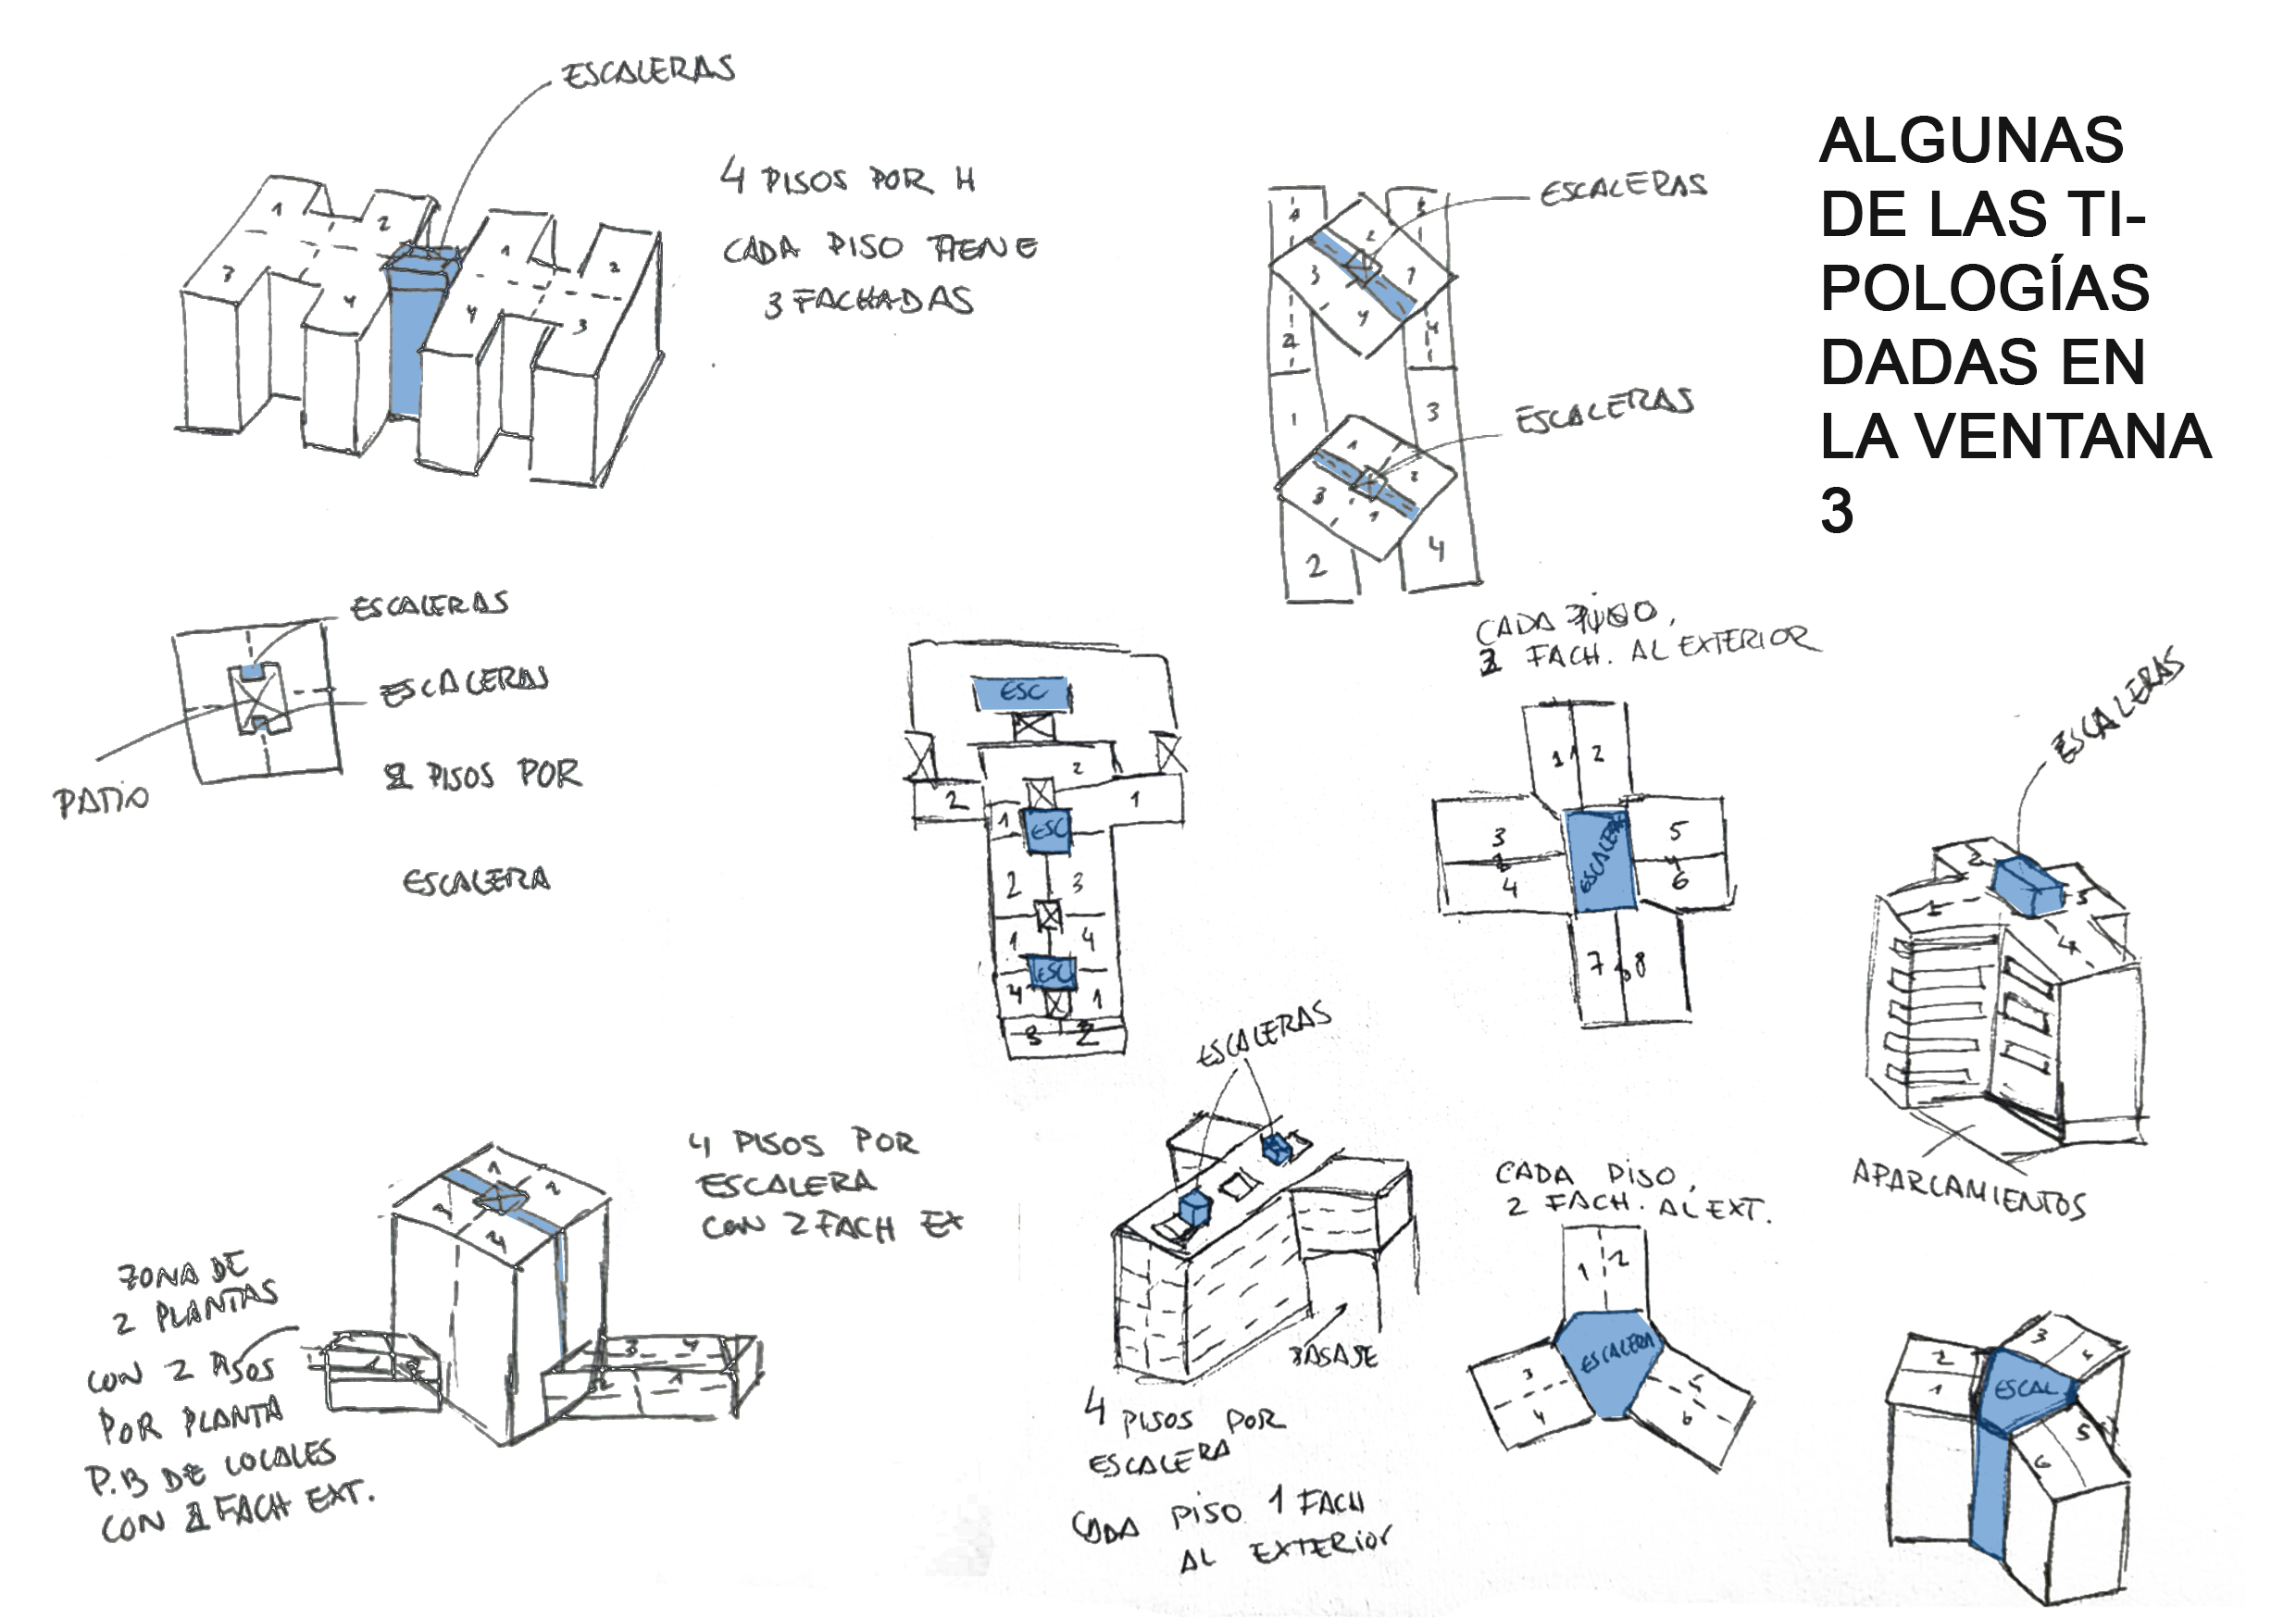 ALGUNAS
DE LAS TI-
POLOGÍAS
DADAS EN
LA VENTANA
3
ESCALERAS
4 PISOS POR H
CADA PISO TIENE
3 FACHADAS
1
2
3
4
1
2
4
3
ESCALERAS
ESCALERAS
1
2
3
4
1
2
3
2
4
1
3
2
4
ESCALERAS
ESCALERAS
PATIO
2 PISOS POR
ESCALERA
ESC
2
2
1
1
ESC
2
3
1
4
ESC
4
1
3
2
CADA PISO,
FACH. AL EXTERIOR
1
2
3
5
4
6
7
8
ESCALERA
ESCALERAS
2
1
3
4
APARCAMIENTOS
4 PISOS POR
ESCALERA
CON 2 FACH EX
1
2
4
ZONA DE
2 PLANTAS
CON 2 PISOS
POR PLANTA
P.B DE LOCALES
CON FACH EXT.
1
2
3
4
2
1
ESCALERAS
PASAJE
4 PISOS POR
ESCALERA
CADA PISO 1 FACH
AL EXTERIOR
CADA PISO,
2 FACH. AL EXT.
1
2
ESCALERA
3
4
5
6
2
1
3
ESCAL
5
6